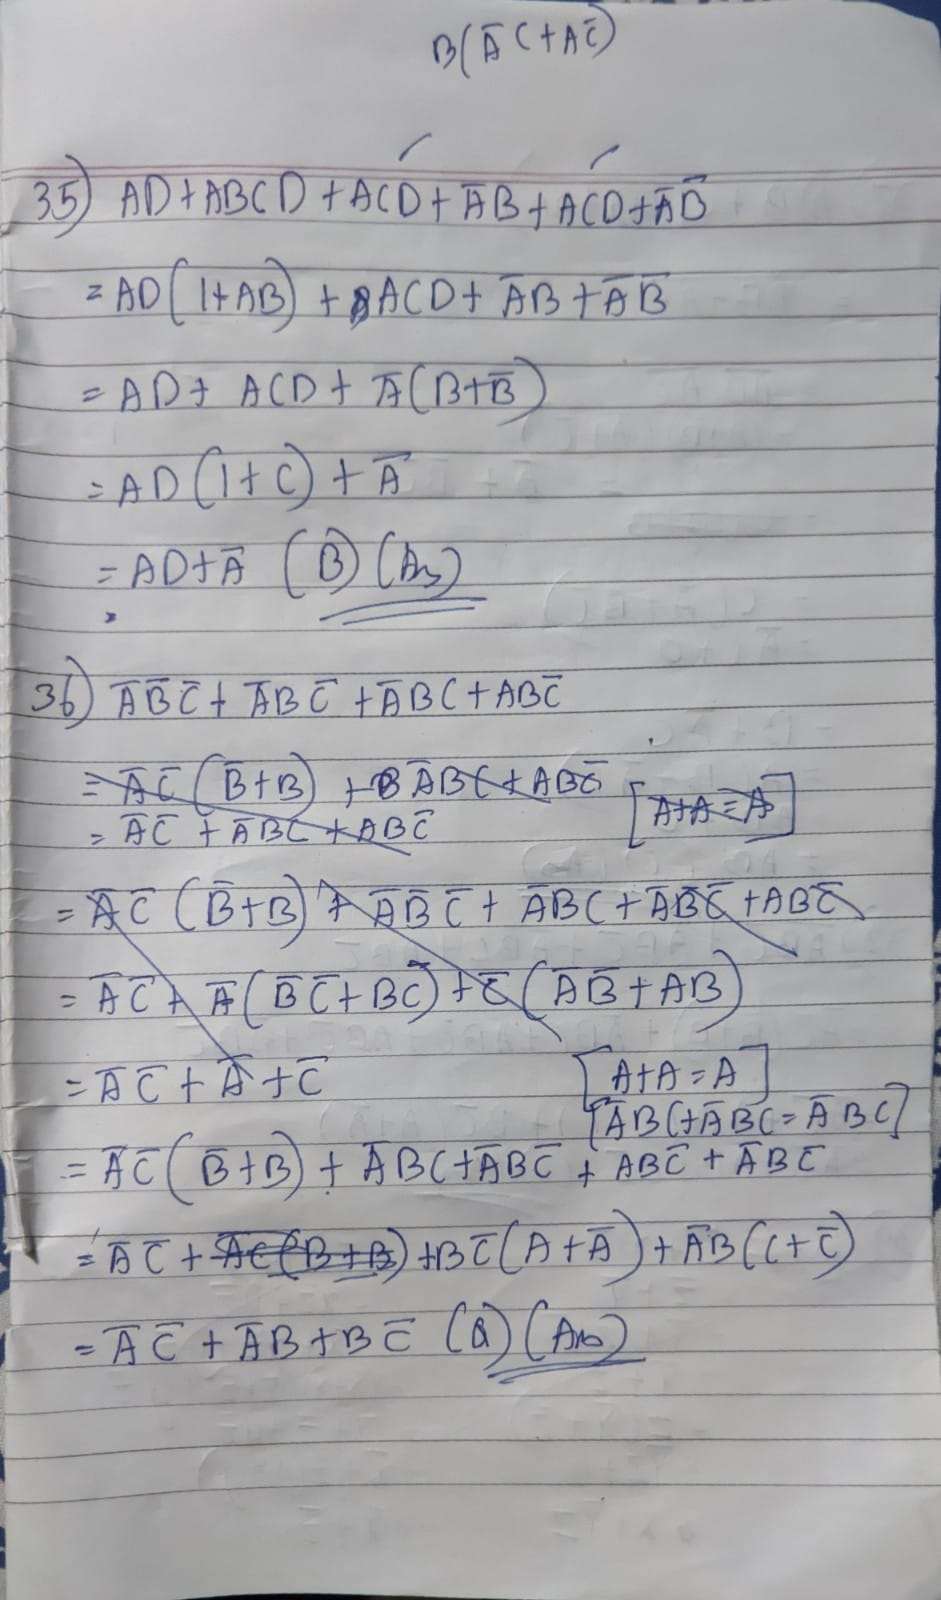 B(A̅C+AC̅)
35) AD+ABCD+ACD+A̅B+ACD+A̅B̅
= AD(1+AB) + ACD+ A̅B+A̅B̅
= AD+ ACD+ A̅(B+B̅)
= AD(1+C)+A̅
= AD+A̅ (B) (Ans)
36) A̅B̅C̅+ A̅BC̅ +A̅BC+ABC̅
= A̅C̅(B̅+B) + A̅BC+ABC̅
= A̅C̅ +A̅BC +ABC̅ [A+A=A]
= A̅C̅(B̅+B)+ A̅B̅C̅+ A̅BC+A̅B̅C̅+ABC̅
= A̅C̅+A̅(B̅C̅+BC)+C̅(A̅B̅+AB)
= A̅C̅+A̅+C̅ [A+A=A]
[A̅BC+A̅BC=A̅BC]
= A̅C̅(B̅+B)+ A̅BC+A̅BC̅ + ABC̅ + A̅BC̅
= A̅C̅+A̅C̅(B+B)+BC̅(A+A̅)+A̅B(C+C̅)
= A̅C̅+A̅B+BC̅ (a) (Ans)